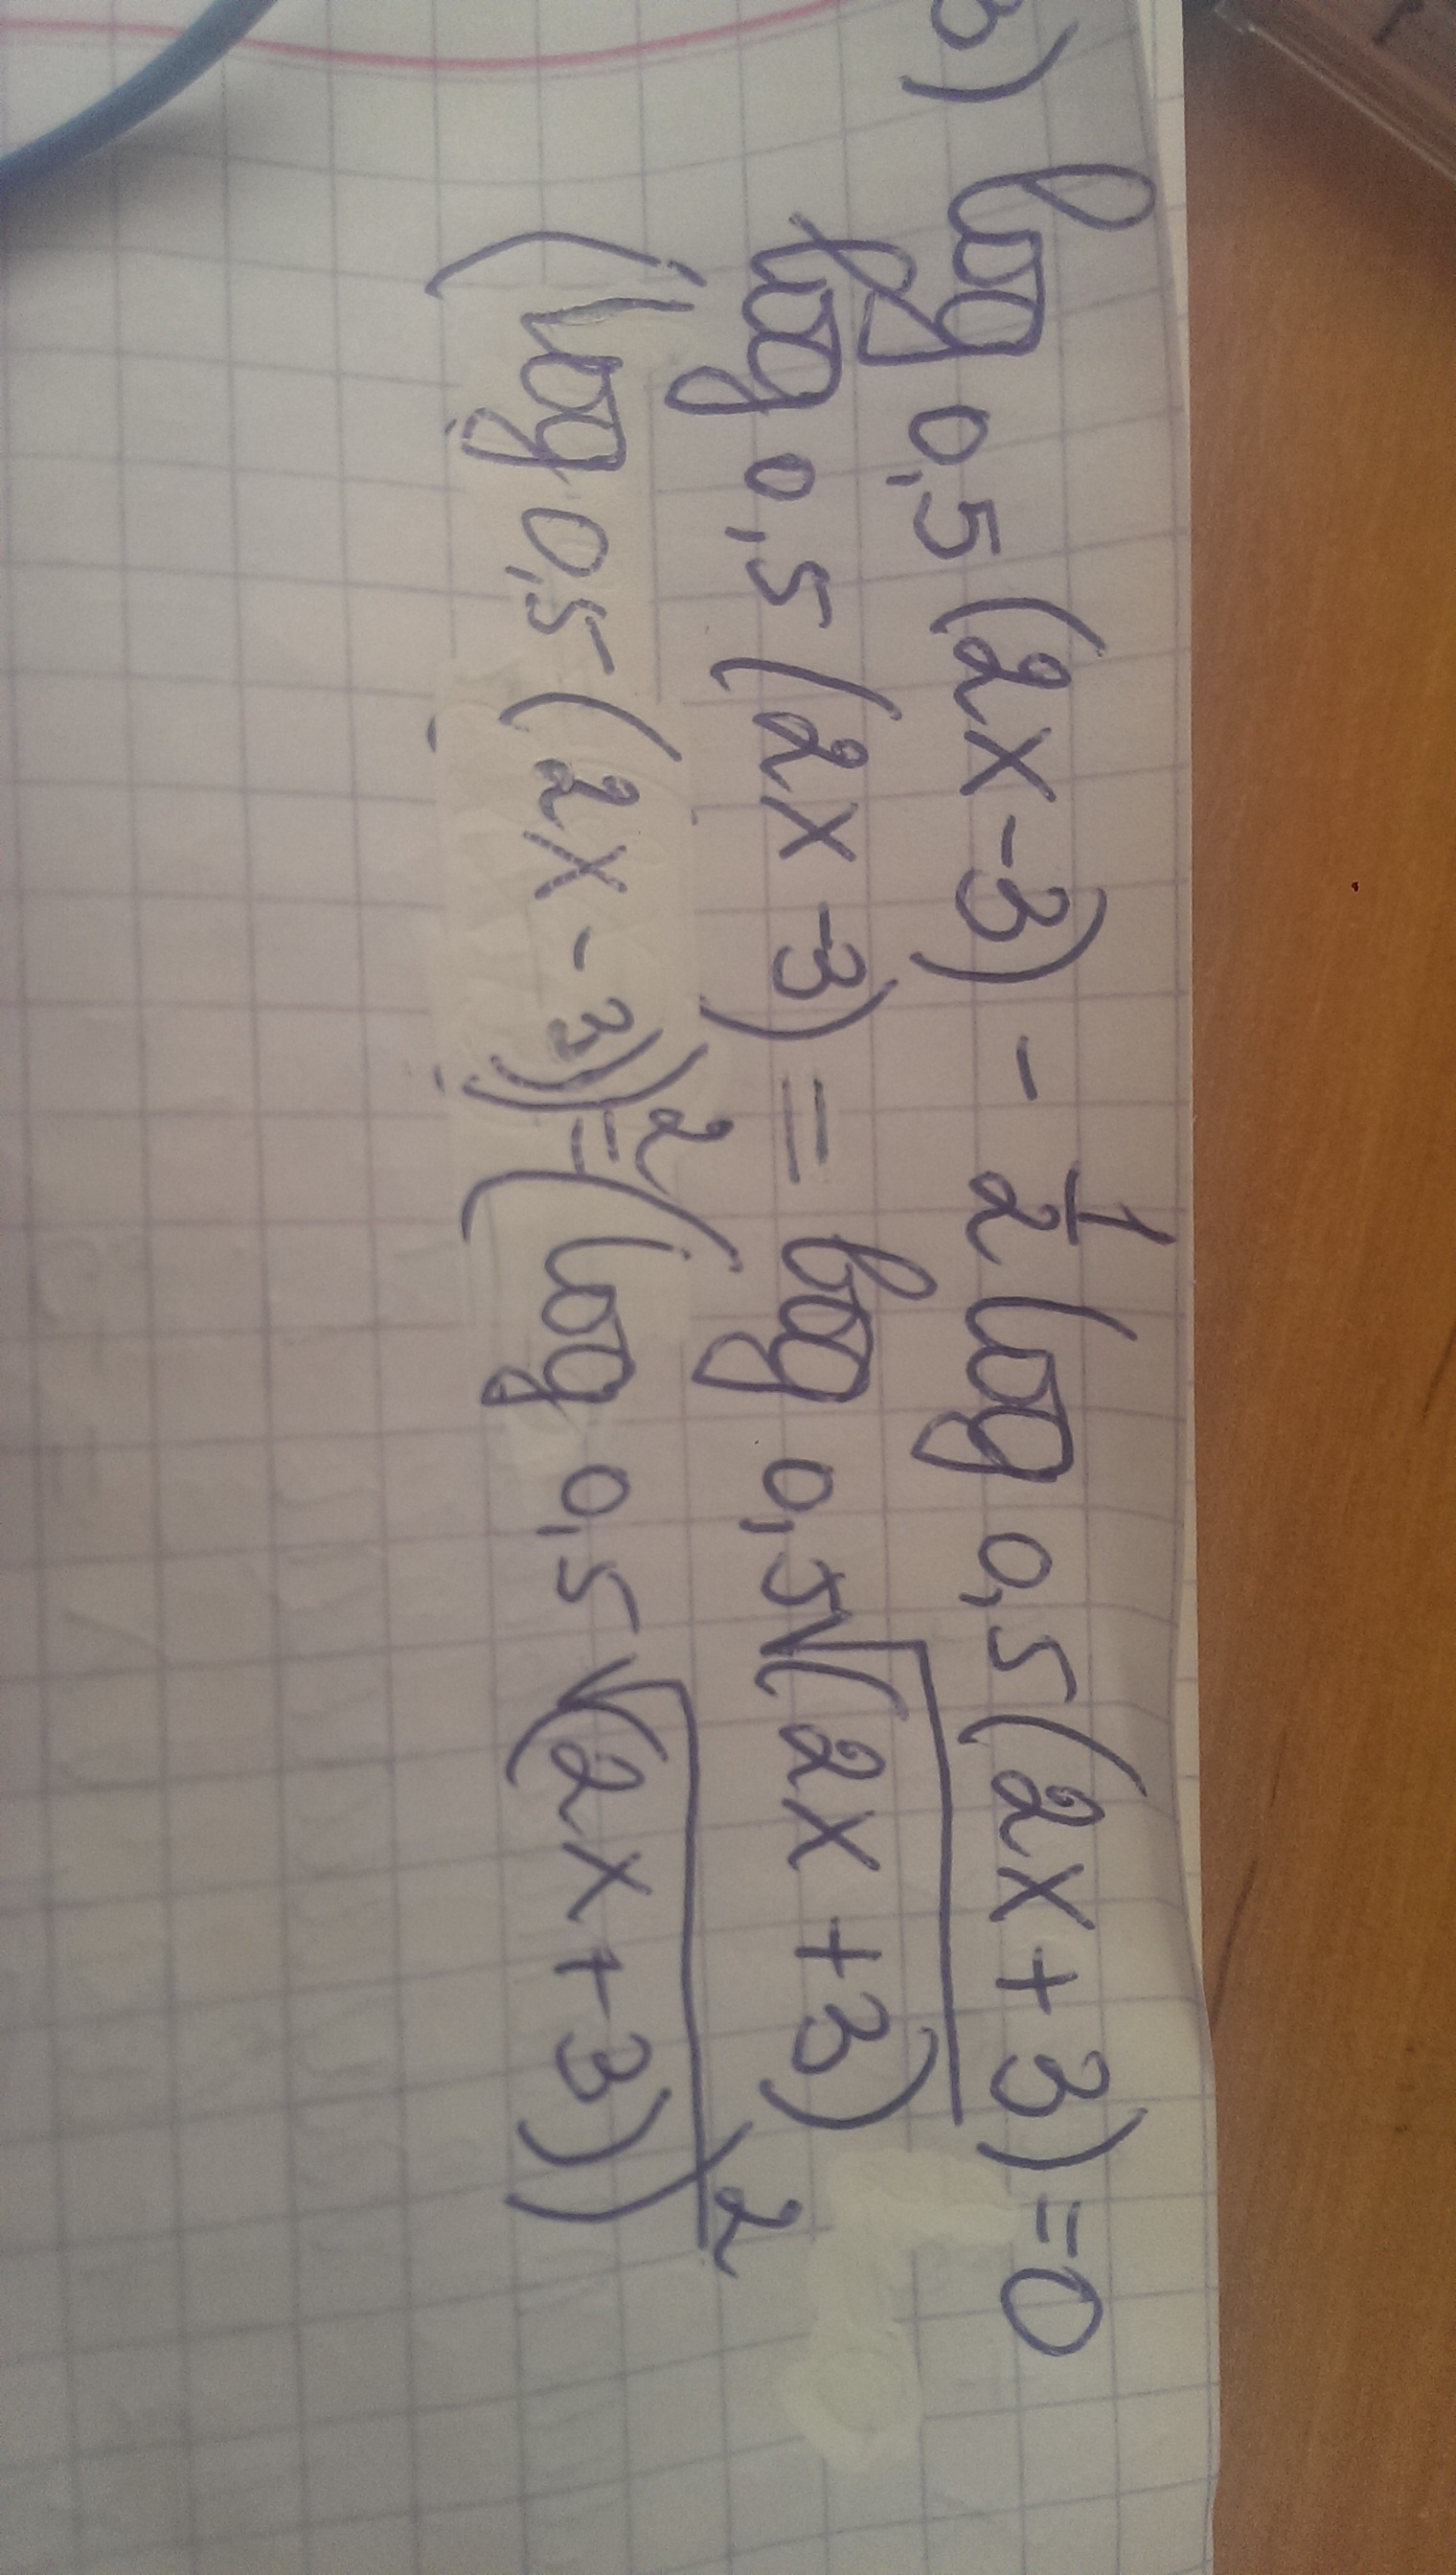 в) log 0,5 (2x-3) - 1/2 log 0,5 (2x+3) = 0
log 0,5 (2x-3) = log 0,5 √(2x+3)
(log 0,5 (2x-3))² = (log 0,5 √(2x+3))²